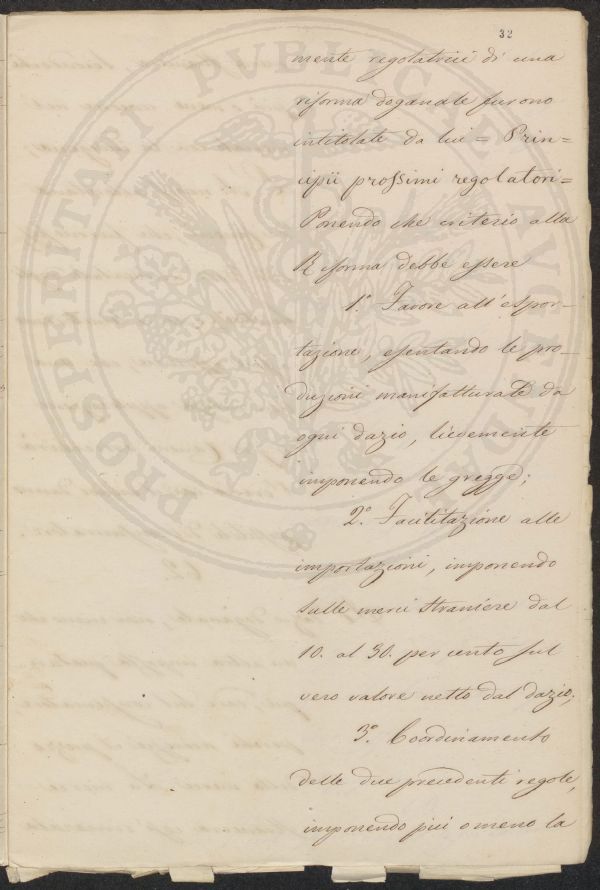 32
mente regolatrici di una
riforma doganale furono
intitolate da lui = Prin=
cipii prossimi regolatori=
Ponendo che criterio alla
Riforma debbe essere
1.° Favore all'espor-
tazione, esentando le pro-
duzioni manifatturate da
ogni dazio, lievemente
imponendo le gregge;
2.° Facilitazione alle
importazioni, imponendo
sulle merci straniere dal
10. al 30. per cento sul
vero valore netto dal dazio;
3.° Coordinamento
delle due precedenti regole,
imponendo più o meno la
PROSPERITATI PVBLICAE AVGENDAE